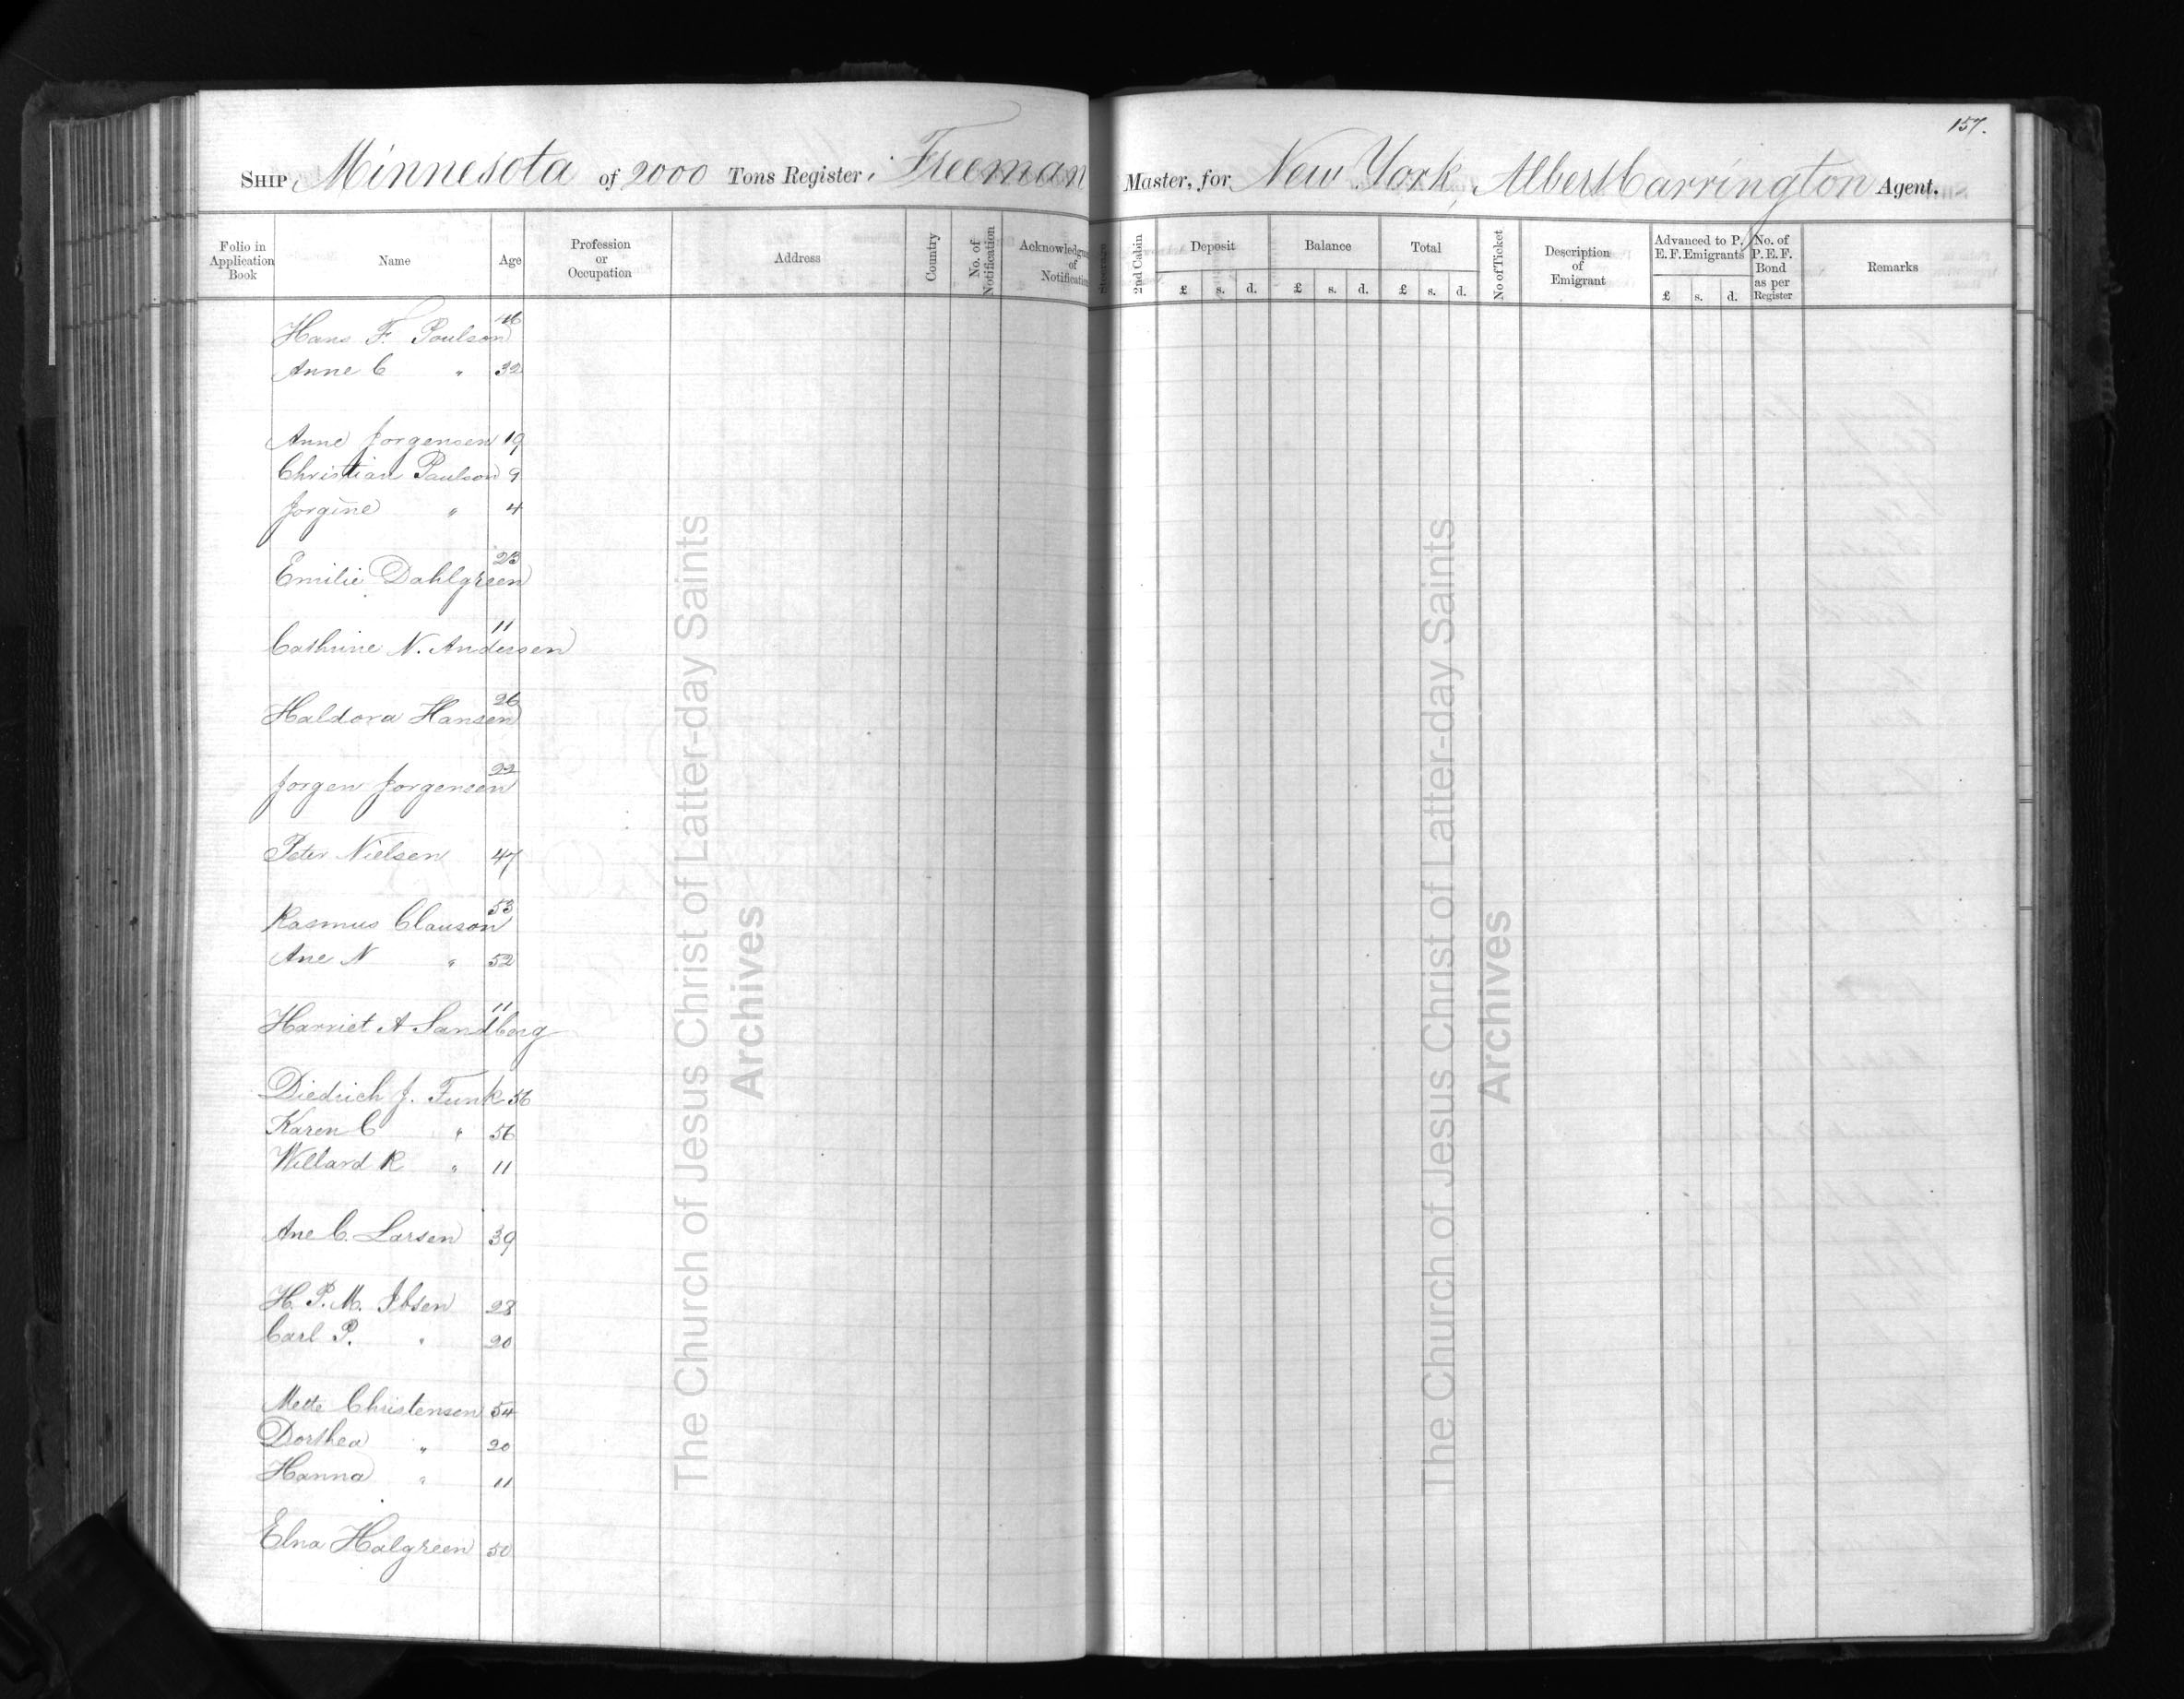 157.
SHIP, Minnesota of 2000 Tons Register, Freeman Master, for New York, Albert Carrington Agent.
Folio in Application Book Name Age Profession or Occupation Address Country No. of Notification Acknowledgm of Notification Steerage 2nd Cabin Deposit £ s. d. Balance £ s. d. Total £ s. d. No of Ticket Description of Emigrant Advanced to P. E. F. Emigrants £ s. d. No. of P.E.F. Bond as per Register Remarks
Hans F. Poulson 46
Anne C " 32
Anne Jorgensen 19
Christian Paulson 9
Jorgine " 4
Emilie Dahlgreen 23
Cathrine N. Andersen 11
Haldora Hansen 26
Jorgen Jorgensen 22
Peter Nielsen 47
Rasmus Clauson 53
Ane N " 52
Harriet A Sandberg 11
Diedrich J. Funk 56
Karen C " 56
Willard R " 11
Ane C. Larsen 39
H. P. M. Ibsen 28
Carl P. " 20
Mette Christensen 54
Dorthea " 20
Hanna " 11
Elna Halgreen 50
The Church of Jesus Christ of Latter-day Saints
Archives
The Church of Jesus Christ of Latter-day Saints
Archives